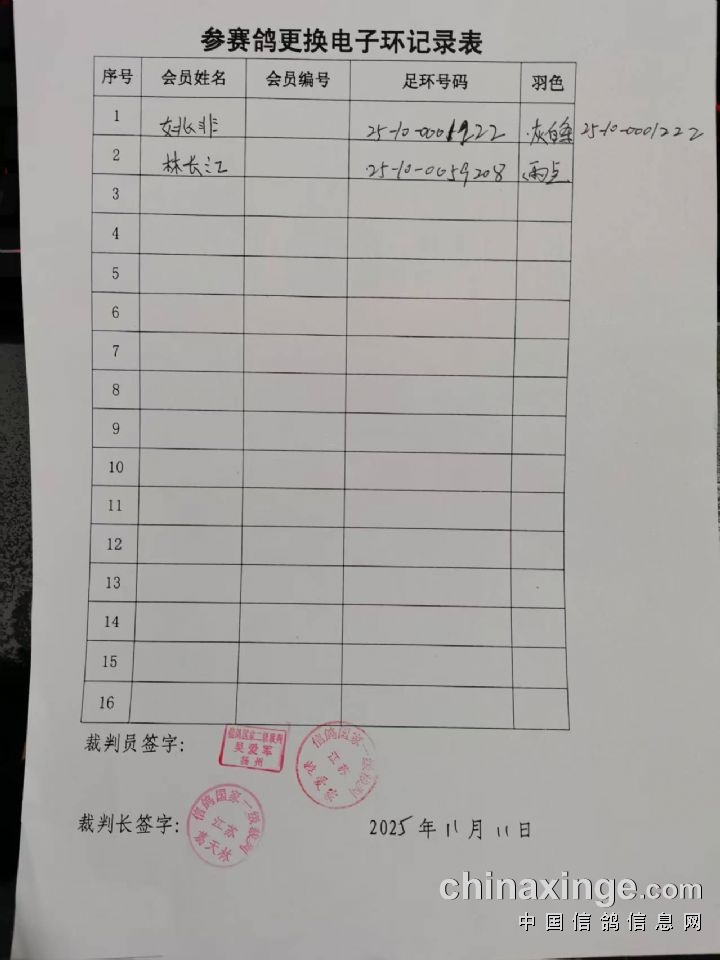 参赛鸽更换电子环记录表
序号 会员姓名 会员编号 足环号码 羽色
1 姚非 25-10-0001222 灰白条 25-10-0001222
2 林长江 25-10-0059208 雨点
3
4
5
6
7
8
9
10
11
12
13
14
15
16
裁判员签字:
信鸽国家二级裁判
吴爱军
扬州
信鸽国家一级裁判
江苏
裁判长签字:
信鸽国家一级裁判
江苏
葛天林
2025年11月11日
chinaxinge.com
中国信鸽信息网